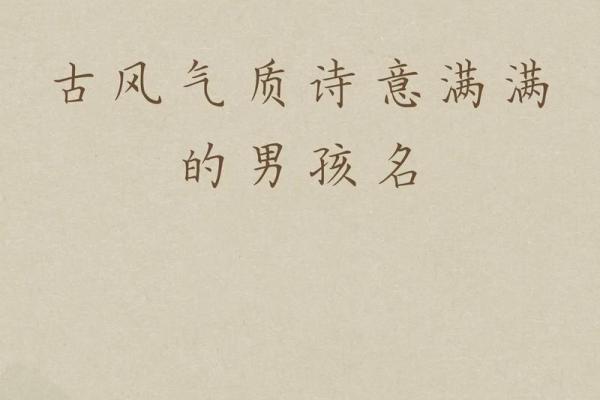 古风气质诗意满满
的男孩名